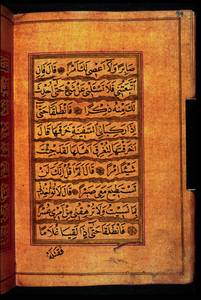 صَابِرًا وَلَا أَعْصِي لَكَ أَمْرًا قَالَ فَإِنِ
اتَّبَعْتَنِي فَلَا تَسْأَلْنِي عَنْ شَيْءٍ حَتَّى أُحْدِثَ
لَكَ مِنْهُ ذِكْرًا فَانْطَلَقَا حَتَّى
إِذَا رَكِبَا فِي السَّفِينَةِ خَرَقَهَا قَالَ
أَخَرَقْتَهَا لِتُغْرِقَ أَهْلَهَا لَقَدْ جِئْتَ
شَيْئًا إِمْرًا قَالَ أَلَمْ أَقُلْ إِنَّكَ لَنْ
تَسْتَطِيعَ مَعِيَ صَبْرًا قَالَ لَا تُؤَاخِذْنِي
بِمَا نَسِيتُ وَلَا تُرْهِقْنِي مِنْ أَمْرِي عُسْرًا
فَانْطَلَقَا حَتَّى إِذَا لَقِيَا غُلَامًا
فَقَتَلَهُ